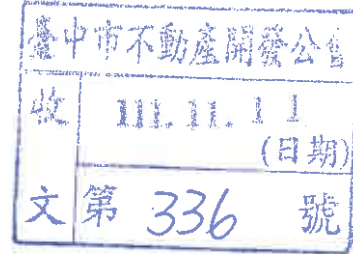 臺中市不動產開發公會
收 111. 11. 11
(日期)
文 第 336 號